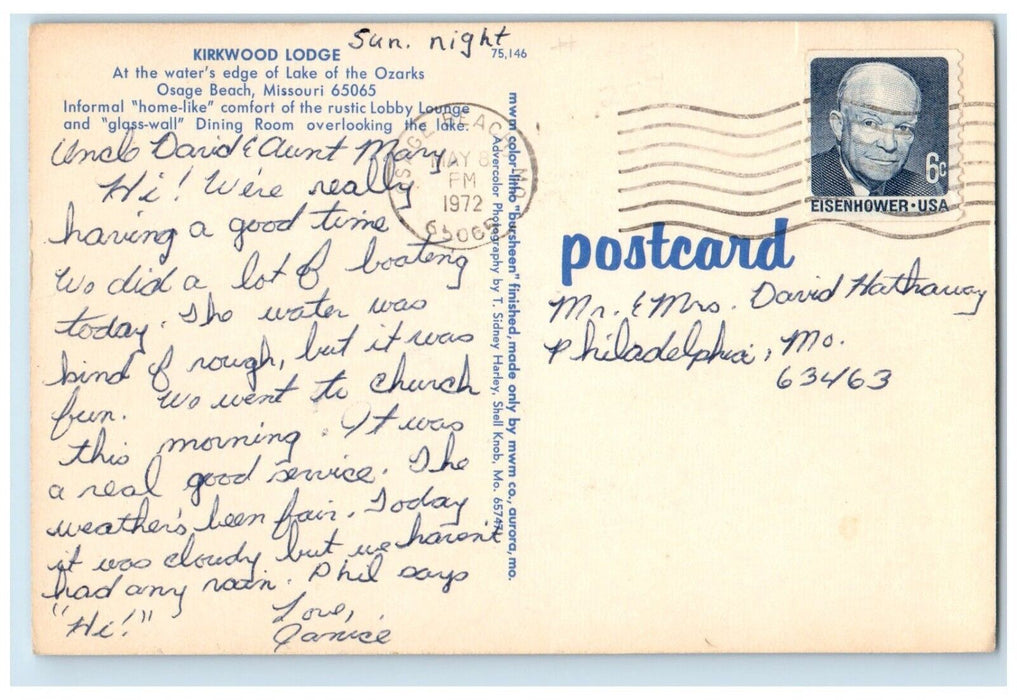 Sun. night
KIRKWOOD LODGE
75,146
At the water's edge of Lake of the Ozarks
Osage Beach, Missouri 65065
Informal "home-like" comfort of the rustic Lobby Lounge
and "glass-wall" Dining Room overlooking the lake.
Uncle David & Aunt Mary
Hi! We're really
having a good time
We did a lot of boating
today. The water was
kind of rough, but it was
fun. We went to church
this morning. It was
a real good service. The
weather's been fair. Today
it was cloudy but we haven't
had any rain. Phil says
"Hi!"
Love,
Janice
mwm color-litho "bursheen" finished, made only by mwm co., aurora, mo.
Advercolor Photography by T. Sidney Harley, Shell Knob, Mo. 65747
OSAGE BEACH, MO.
MAY 8
PM
1972
65065
6c
EISENHOWER·USA
postcard
Mr. & Mrs. David Hathaway
Philadelphia, Mo.
63463